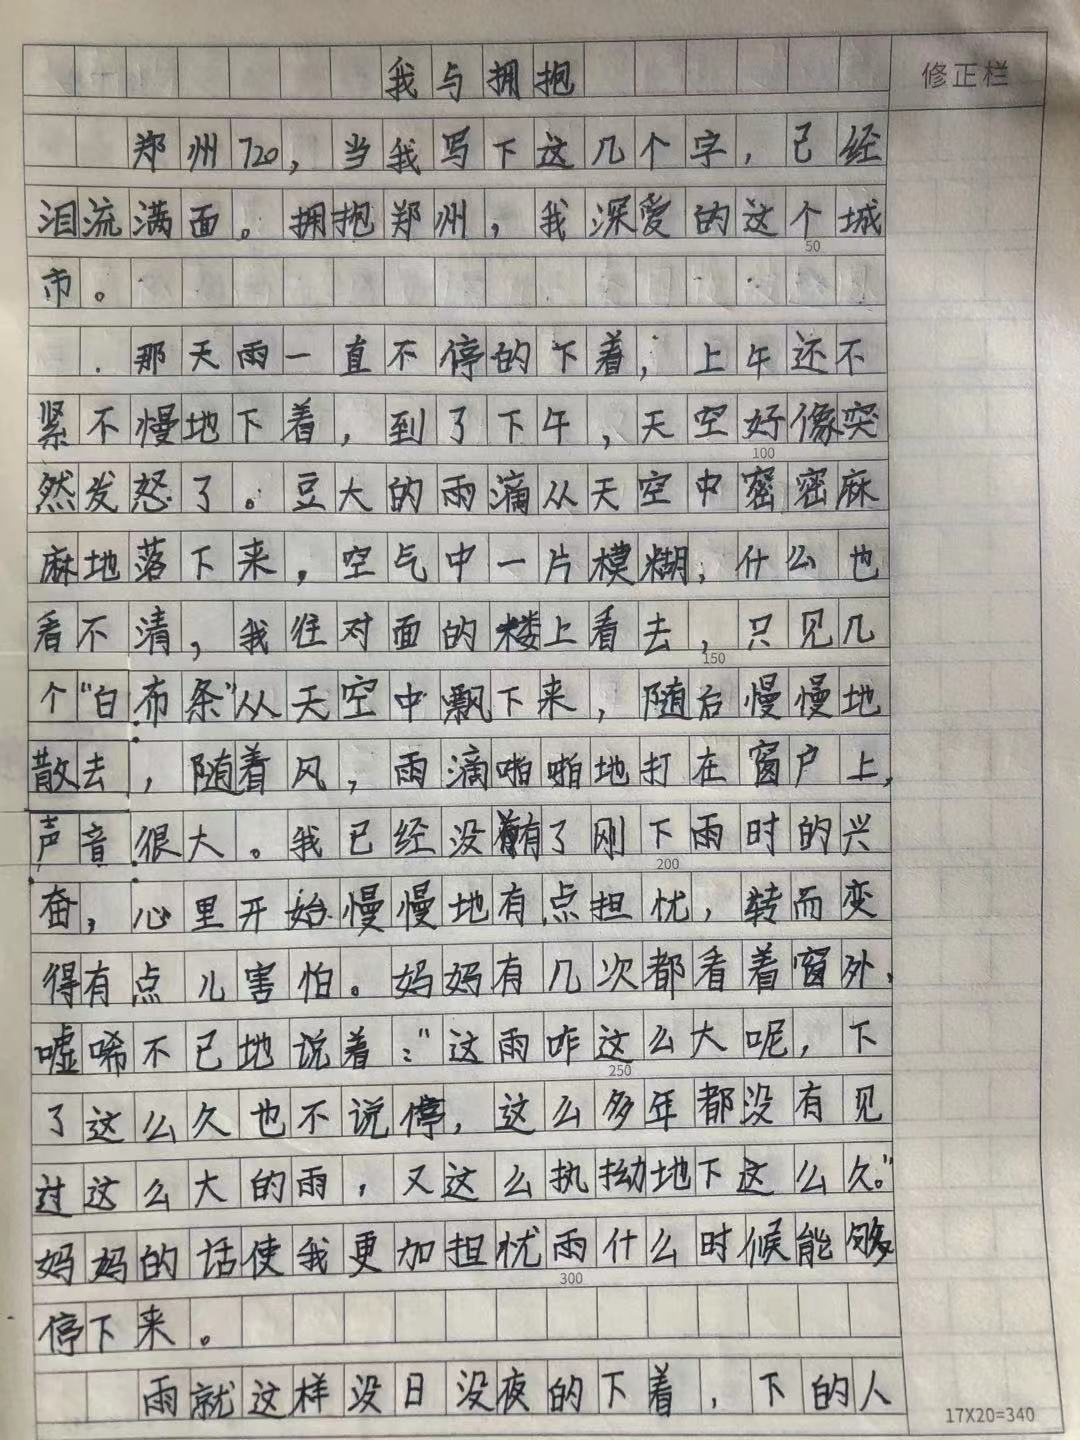 我与拥抱
修正栏
郑州720，当我写下这几个字，已经
泪流满面。拥抱郑州，我深爱的这个城
50
市。
那天雨一直不停的下着，上午还不
紧不慢地下着，到了下午，天空好像突
100
然发怒了。豆大的雨滴从天空中密密麻
麻地落下来，空气中一片模糊，什么也
看不清，我往对面的楼上看去，只见几
150
个“白布条”从天空中飘下来，随后慢慢地
散去，随着风，雨滴啪啪地打在窗户上，
声音很大。我已经没有了刚下雨时的兴
200
奋，心里开始慢慢地有点担忧，转而变
得有点儿害怕。妈妈有几次都看着窗外，
嘘唏不已地说着：“这雨咋这么大呢，下
250
了这么久也不说停，这么多年都没有见
过这么大的雨，又这么执拗地下这么久。”
妈妈的话使我更加担忧雨什么时候能够
300
停下来。
雨就这样没日没夜的下着，下的人
17X20=340